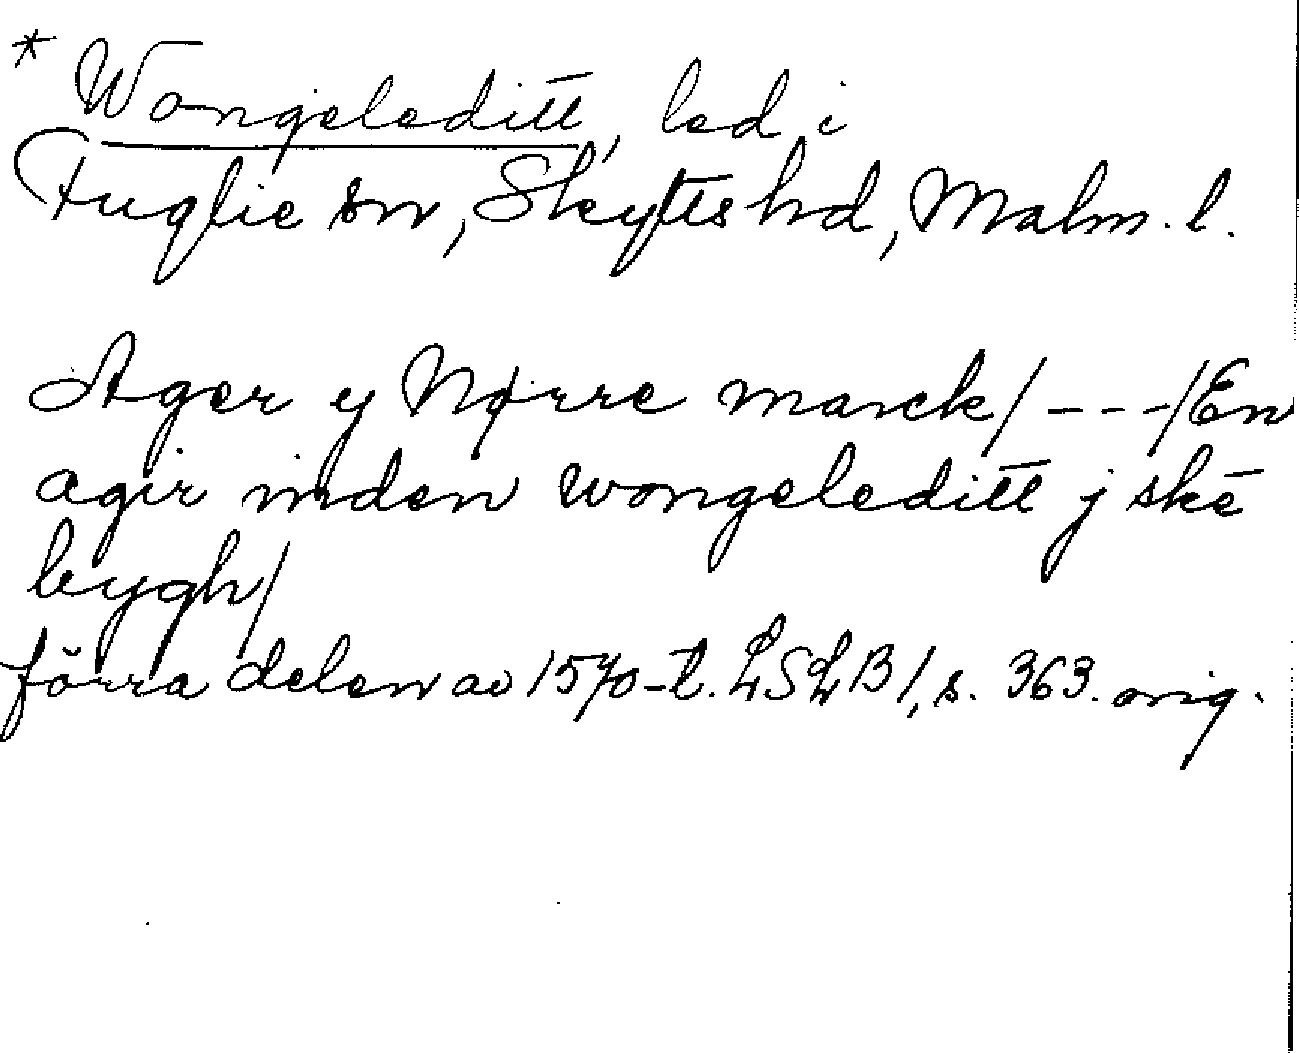 * Wongeleditt, led i
Fuglie sn, Skytts hd, Malm. l.
Ager y Nørre marck/ - - - /En
agir inden wongeleditt j skē
bygh/
förra delen av 1570-t. LSLB 1, s. 363. orig.